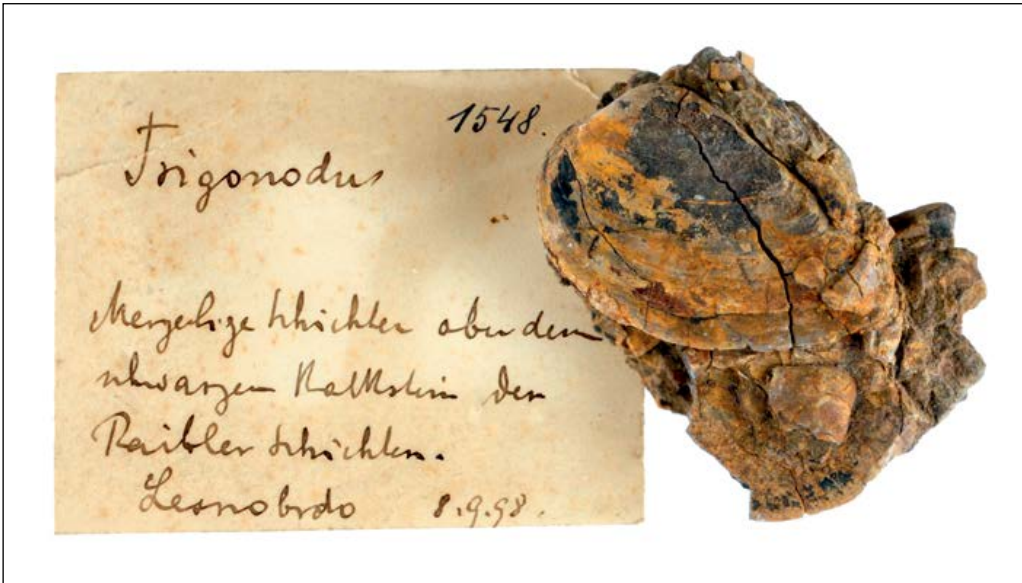 1548.
Trigonodus
Mergelige Schichten ober dem
schwarzem Kalkstein der
Raibler Schichten.
Lesnobrdo 8.9.98.